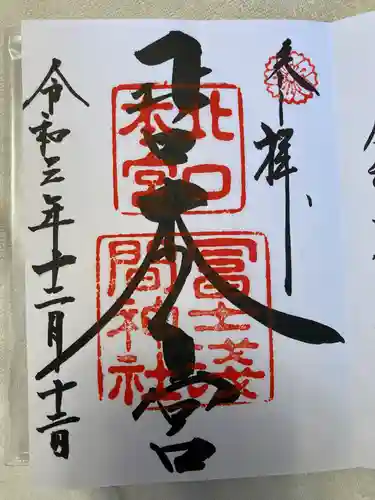 奉拝
北口本宮
北口
本宮
冨士淺
間神社
令和三年十二月十二日